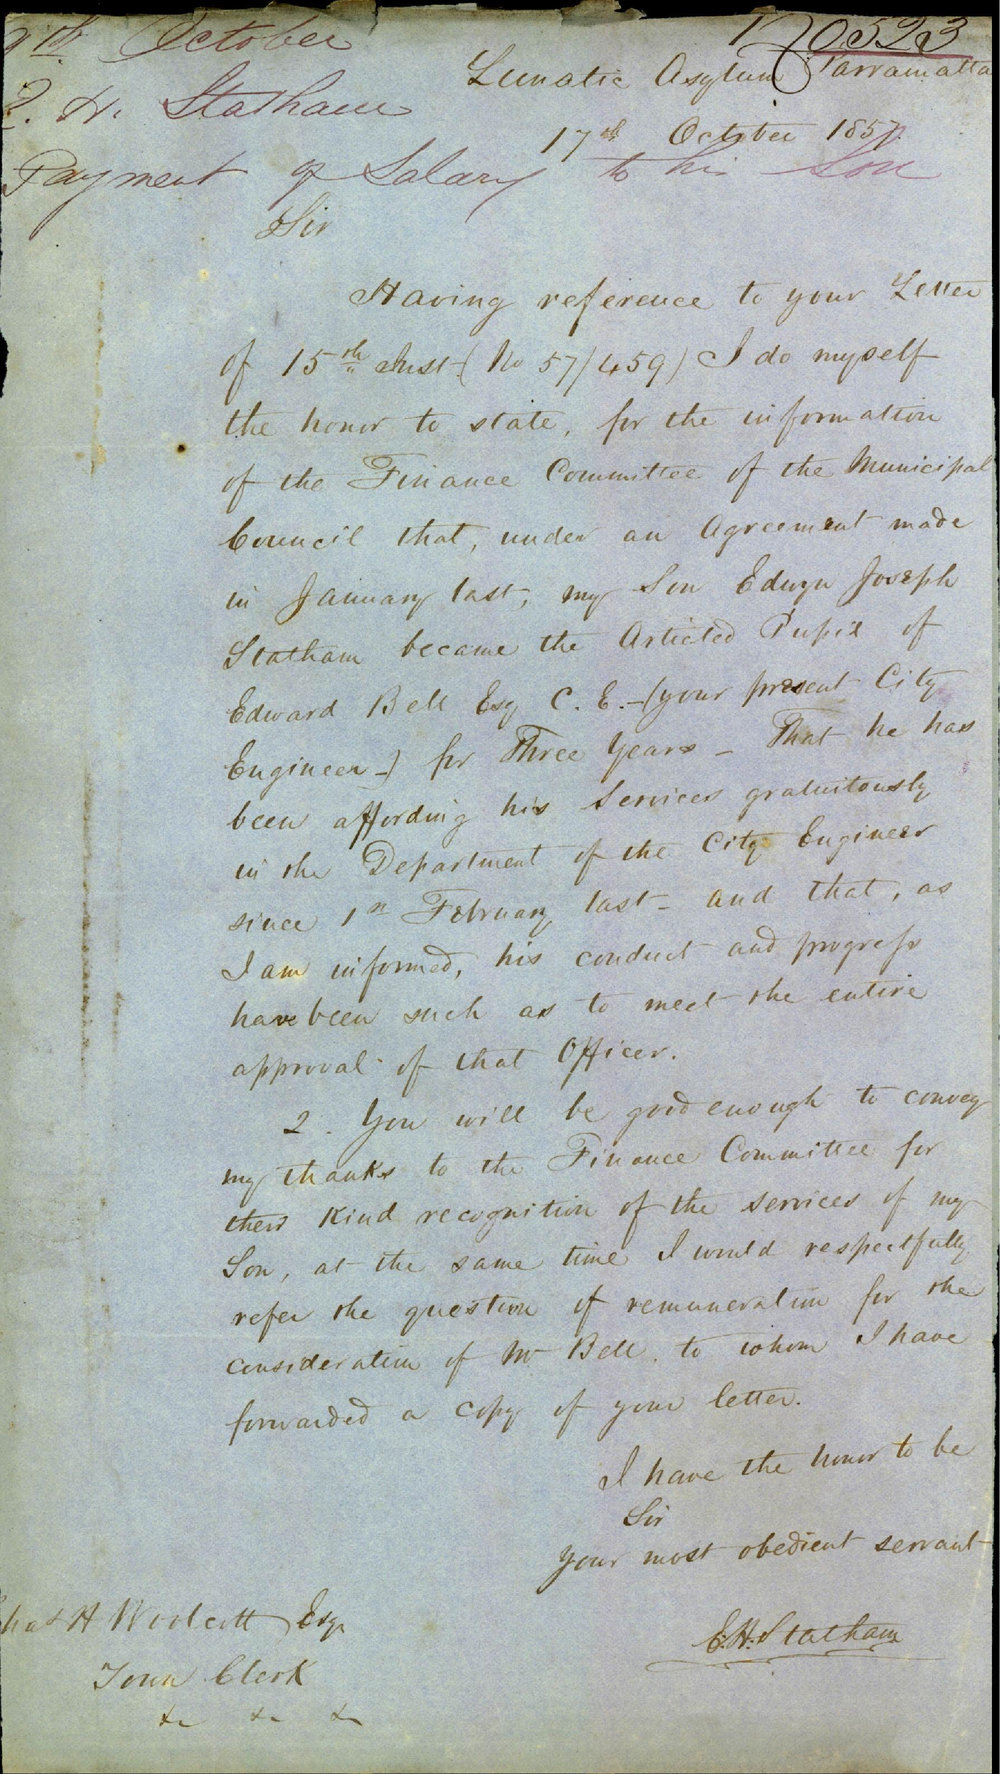 October
No 523
Lunatic Asylum Parramatta
H. Statham
17th October 1857.
Payment of Salary to his Son
Sir
Having reference to your Letter
of 15th Inst (No 57/459) I do myself
the honor to state, for the information
of the Finance Committee of the Municipal
Council that, under an Agreement made
in January last, my Son Edwyn Joseph
Statham became the Articled Pupil of
Edward Bell Esq C. E. - (your present City
Engineer -) for Three Years - That he has
been affording his Services gratuitously
in the Department of the City Engineer
since 1st February last - and that, as
I am informed, his conduct and progress
have been such as to meet the entire
approval of that Officer.
2. You will be good enough to convey
my thanks to the Finance Committee for
their kind recognition of the services of my
Son, at the same time I would respectfully
refer the question of remuneration for the
consideration of Mr Bell to whom I have
forwarded a copy of your letter.
I have the honor to be
Sir
Your most obedient servant
E. H. Statham
Chas H Woolcott Esqr
Town Clerk
&c &c &c